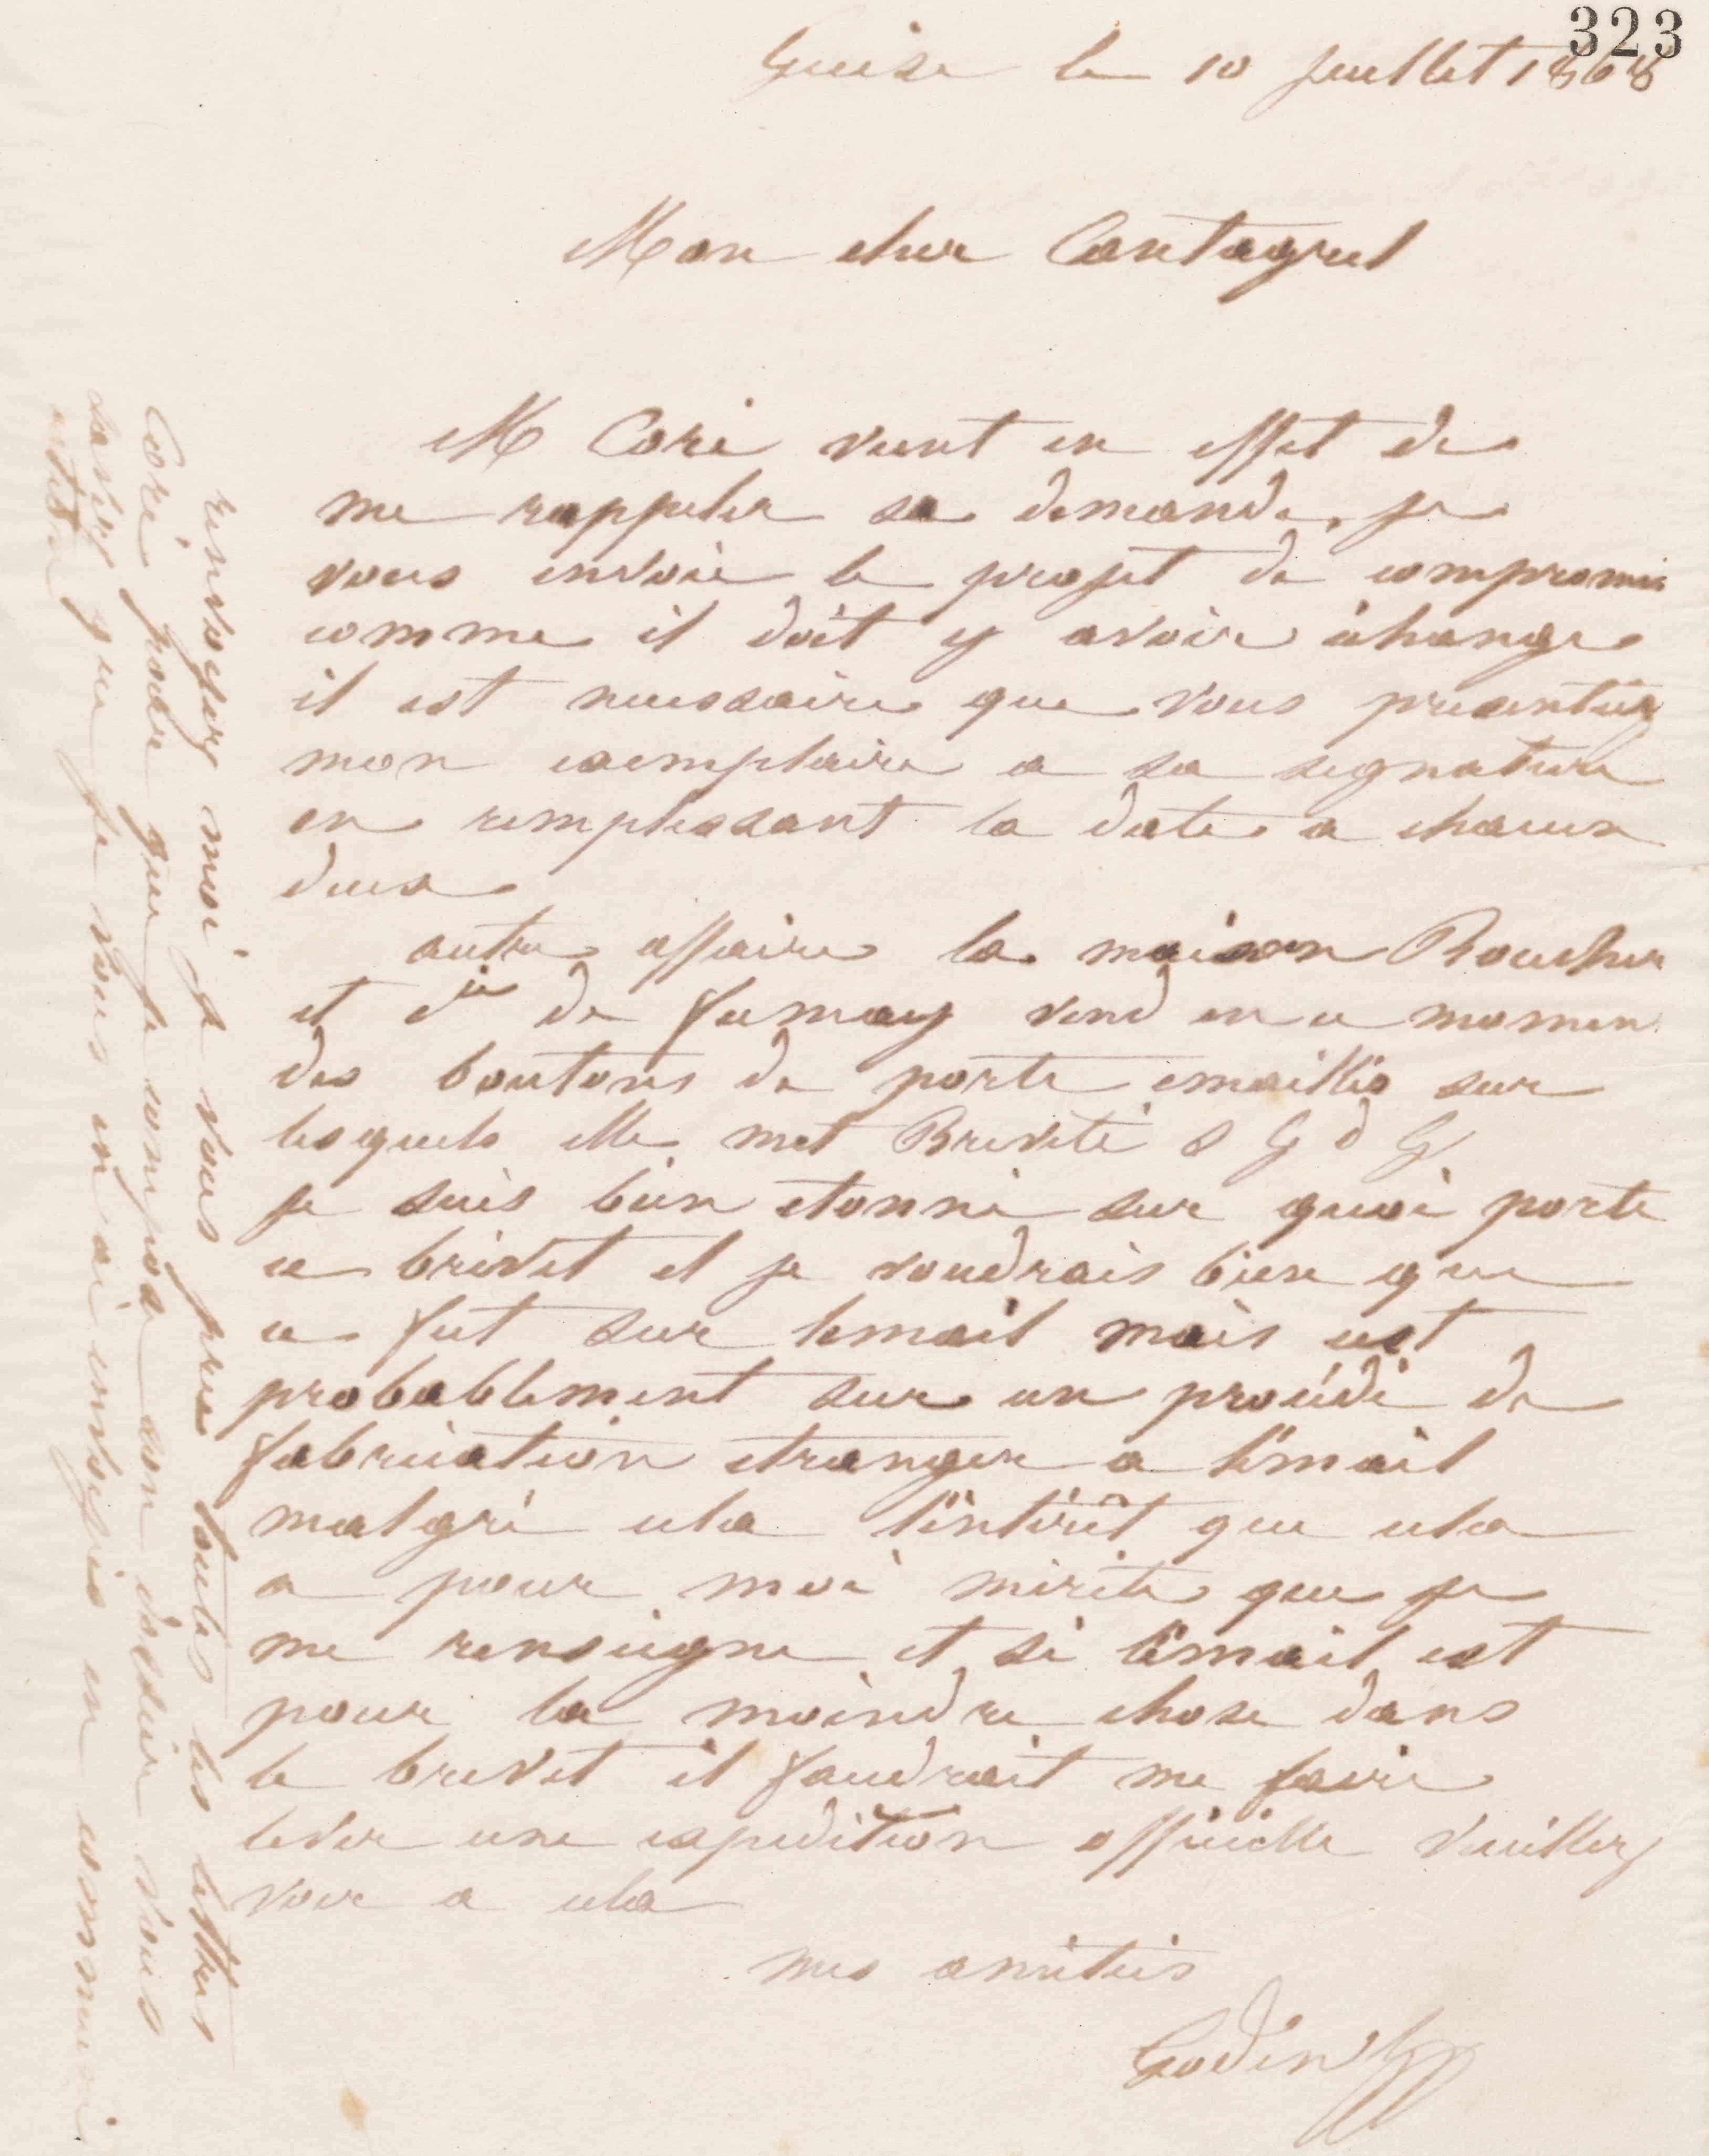 323
Guise le 10 juillet 1868
Mon cher Cantagrel
M Cori vient en effet de
me rappeler sa demande, je
vous envoie le projet de compromis
comme il doit y avoir échange
il est necessaire que vous presentiez
mon exemplaire a sa segnature
en remplissant la date a chacun
deux
autre affaire la maison Boucher
et Cie de fumay vend en ce momen
des boutons de porte emaillés sur
lesquels elle met Breveté S G D G
je suis bien etonné sur quoi porte
ce brevet et je voudrais bien que
ce fut sur lemail mais cest
probablement sur un procédé de
fabrication etranger a lémail
malgré cela l'intérêt que cela
a pour moi mérite que je
me renseigne et si lémail est
pour la moindre chose dans
le brevet il faudrait me faire
lever une expedition officielle veuillez
voir a cela
mes amitiés
Godin
renvoyez moi je vous prie toutes les lettres
Cori pour que je compose son dossier vous
savez que je vous en ai envoyées en communi